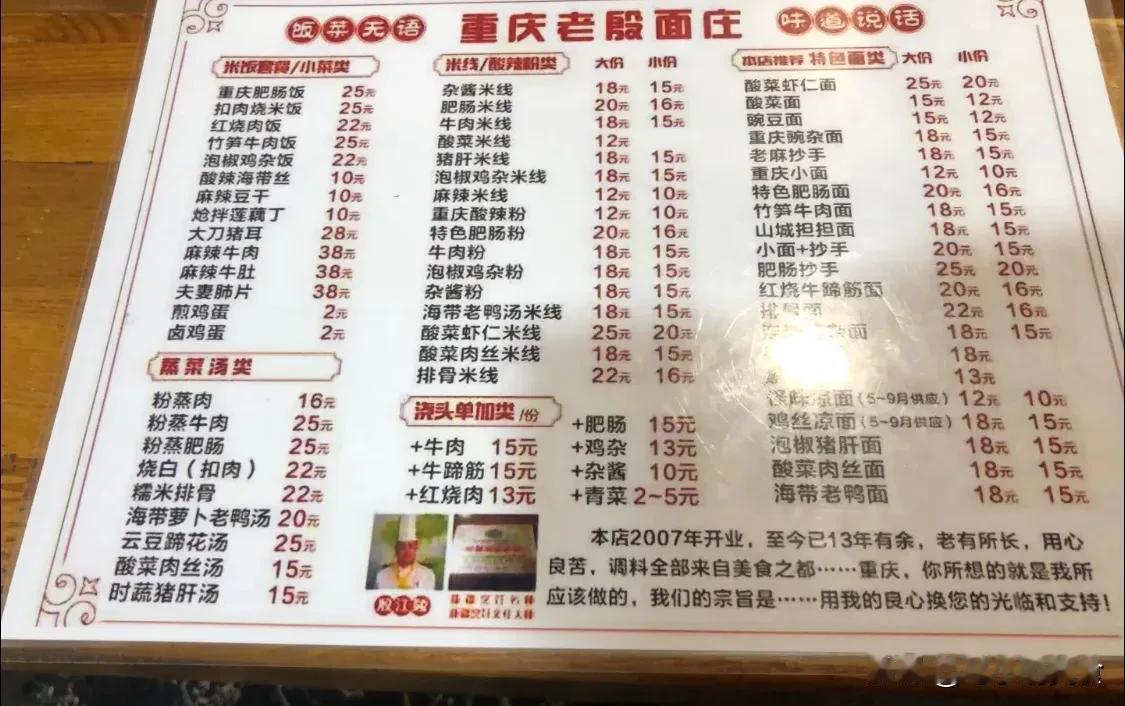 饭菜无语 重庆老殷面庄 味道说话
米饭套餐/小菜类
重庆肥肠饭 25元
扣肉烧米饭 25元
红烧肉饭 22元
竹笋牛肉饭 25元
泡椒鸡杂饭 22元
酸辣海带丝 10元
麻辣豆干 10元
炝拌莲藕丁 10元
大刀猪耳 28元
麻辣牛肉 38元
麻辣牛肚 38元
夫妻肺片 38元
煎鸡蛋 2元
卤鸡蛋 2元
蒸菜汤类
粉蒸肉 16元
粉蒸牛肉 25元
粉蒸肥肠 25元
烧白（扣肉） 22元
糯米排骨 22元
海带萝卜老鸭汤 20元
云豆蹄花汤 25元
酸菜肉丝汤 15元
时蔬猪肝汤 15元
米线/酸辣粉类 大份 小份
杂酱米线 18元 15元
肥肠米线 20元 16元
牛肉米线 18元 15元
酸菜米线 12元
猪肝米线 18元 15元
泡椒鸡杂米线 18元 15元
麻辣米线 12元 10元
重庆酸辣粉 12元 10元
特色肥肠粉 20元 16元
牛肉粉 18元 15元
泡椒鸡杂粉 18元 15元
杂酱粉 18元 15元
海带老鸭汤米线 18元 15元
酸菜虾仁米线 25元 20元
酸菜肉丝米线 18元 15元
排骨米线 22元 16元
浇头单加类/份
+牛肉 15元
+牛蹄筋 15元
+红烧肉 13元
+肥肠 15元
+鸡杂 13元
+杂酱 10元
+青菜 2~5元
本店推荐 特色面类 大份 小份
酸菜虾仁面 25元 20元
酸菜面 15元 12元
豌豆面 15元 12元
重庆豌杂面 18元 15元
老麻抄手 18元 15元
重庆小面 12元 10元
特色肥肠面 20元 16元
竹笋牛肉面 18元 15元
山城担担面 18元 15元
小面+抄手 20元 15元
肥肠抄手 25元 20元
红烧牛蹄筋面 20元 16元
排骨面 22元 16元
面 18元 15元
18元
13元
凉面（5~9月供应） 12元 10元
鸡丝凉面（5~9月供应） 18元 15元
泡椒猪肝面 18元 15元
酸菜肉丝面 18元 15元
海带老鸭面 18元 15元
殷江陵
本店2007年开业，至今已13年有余，老有所长，用心
良苦，调料全部来自美食之都……重庆，你所想的就是我所
应该做的，我们的宗旨是……用我的良心换您的光临和支持！